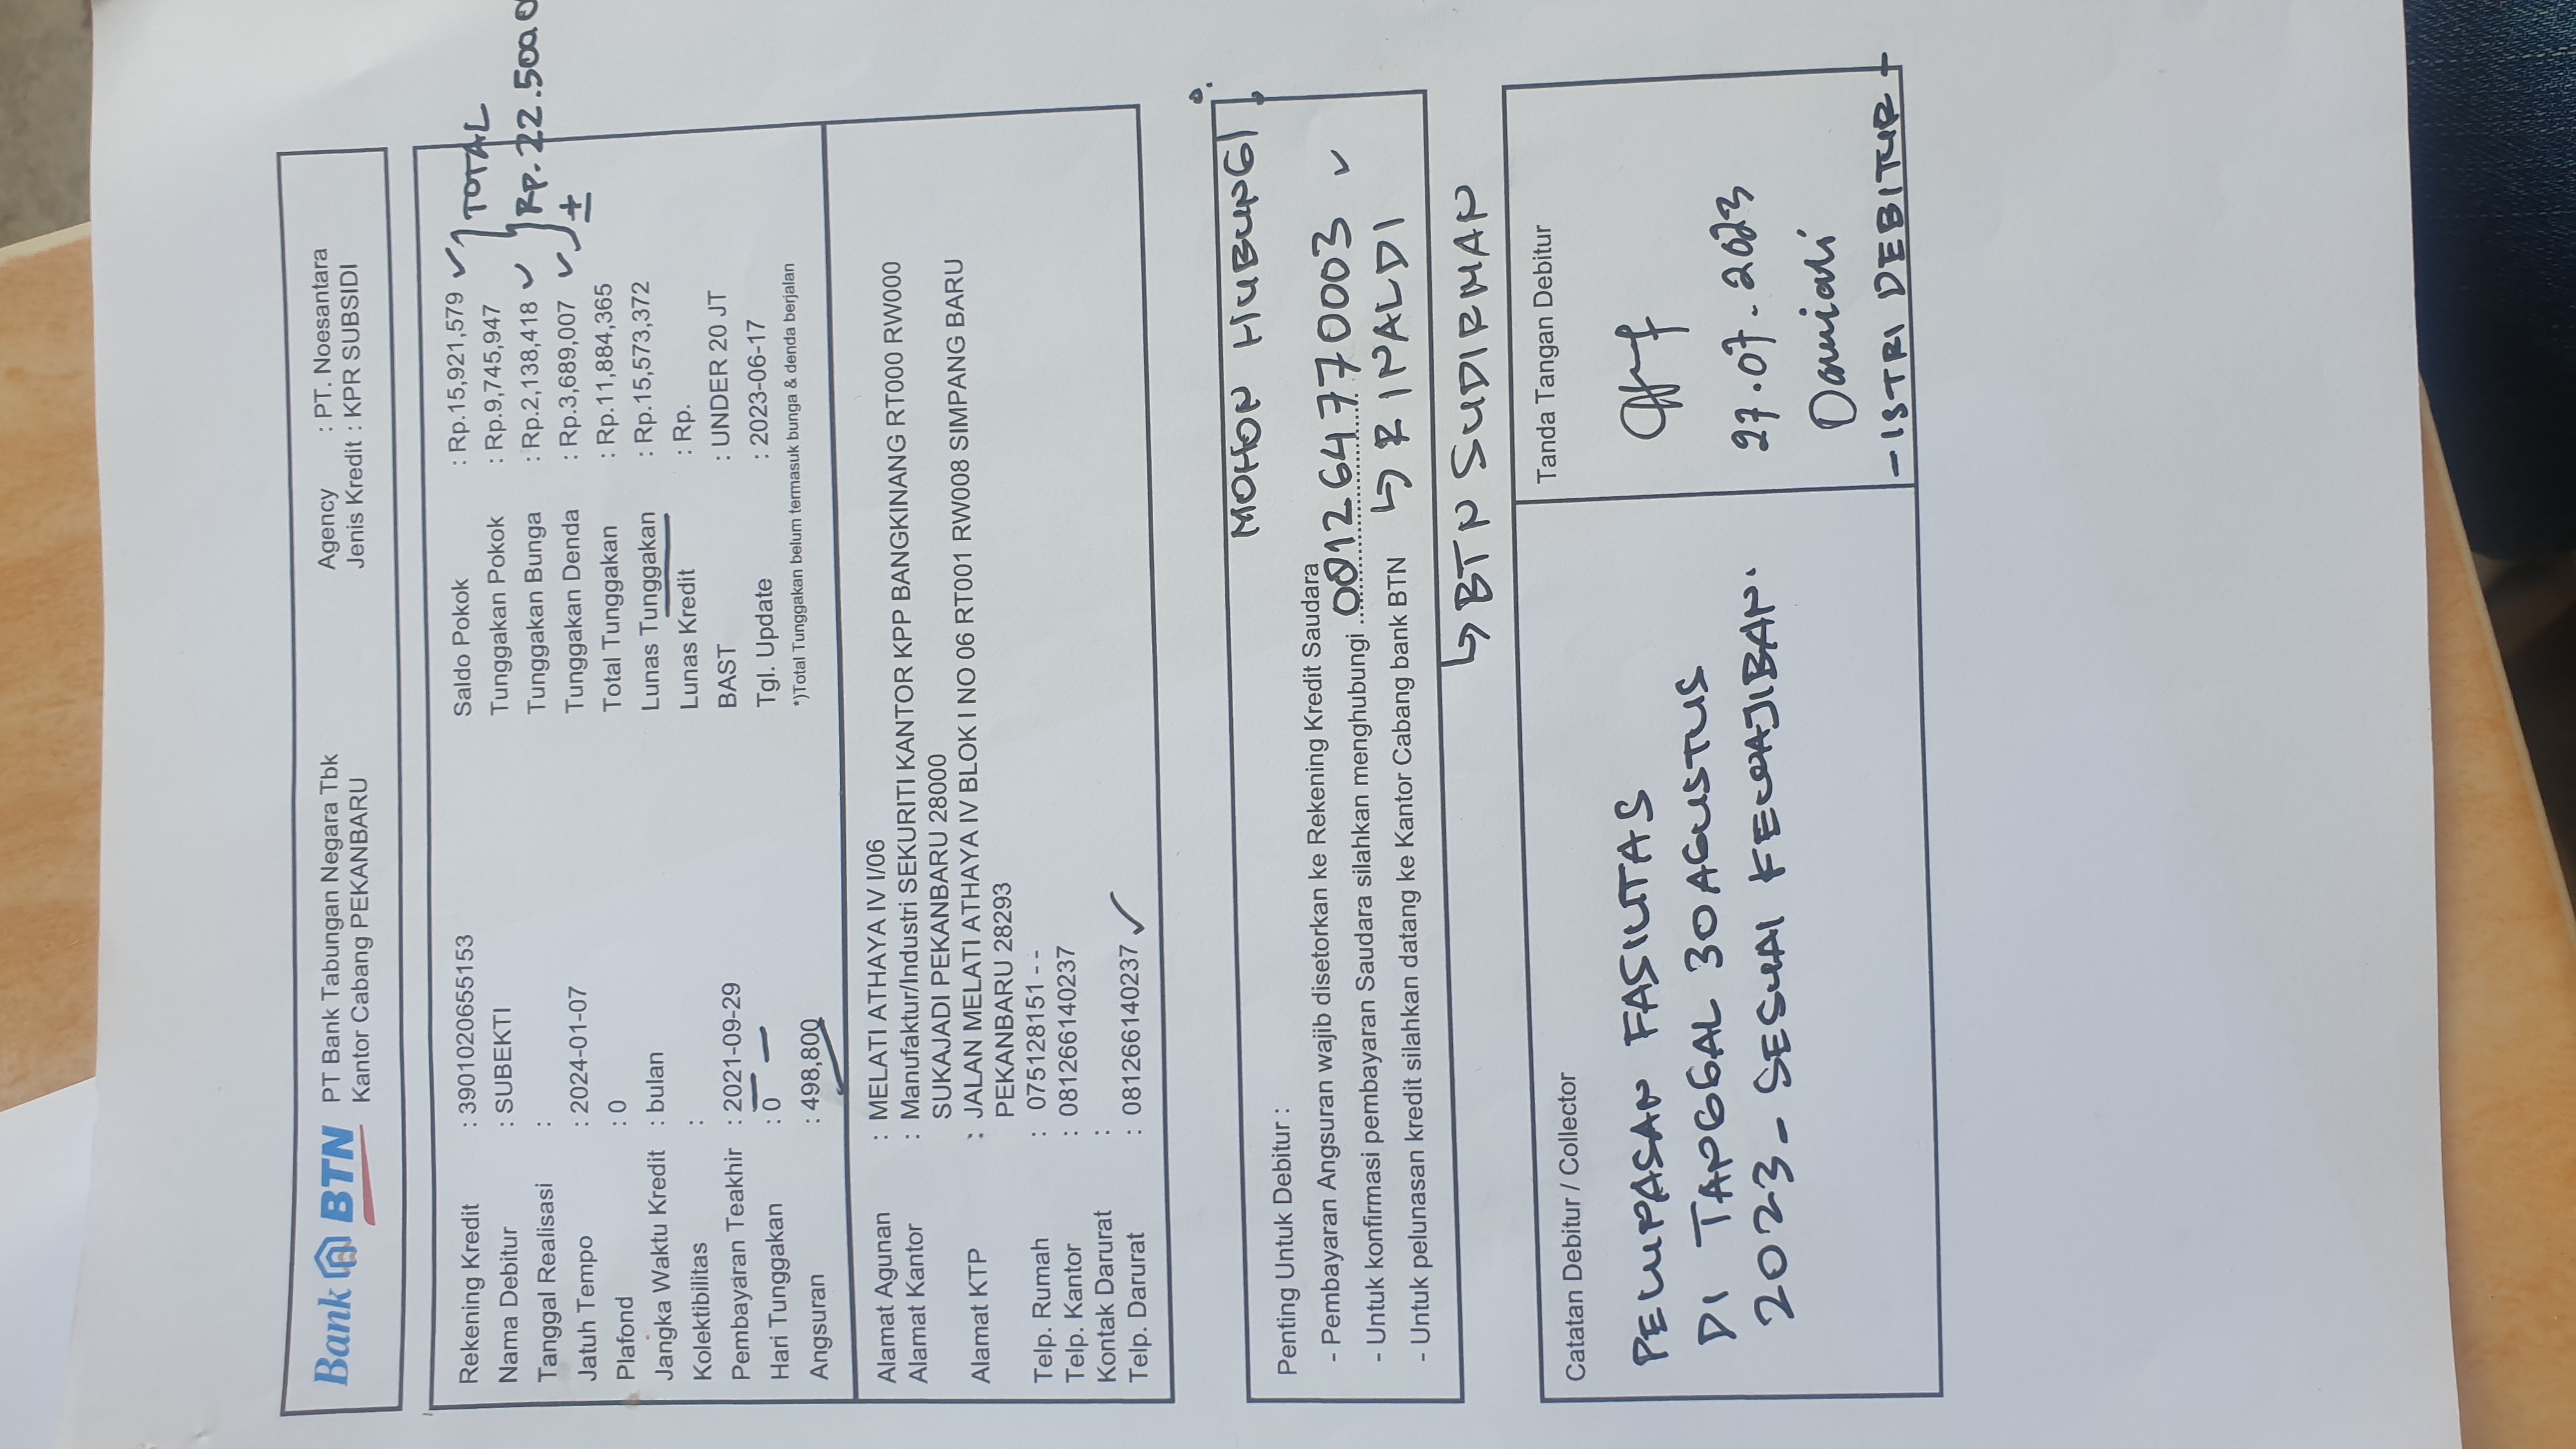 Bank BTN
PT Bank Tabungan Negara Tbk
Kantor Cabang PEKANBARU
Agency : PT. Noesantara
Jenis Kredit : KPR SUBSIDI
Rekening Kredit : 3901020655153
Nama Debitur : SUBEKTI
Tanggal Realisasi :
Jatuh Tempo : 2024-01-07
Plafond : 0
Jangka Waktu Kredit : bulan
Kolektibilitas :
Pembayaran Teakhir : 2021-09-29
Hari Tunggakan : 0
Angsuran : 498,800
Saldo Pokok : Rp.15,921,579
Tunggakan Pokok : Rp.9,745,947
Tunggakan Bunga : Rp.2,138,418
Tunggakan Denda : Rp.3,689,007
Total Tunggakan : Rp.11,884,365
Lunas Tunggakan : Rp.15,573,372
Lunas Kredit : Rp.
BAST : UNDER 20 JT
Tgl. Update : 2023-06-17
*)Total Tunggakan belum termasuk bunga & denda berjalan
TOTAL
Rp. 22.500
±
Alamat Agunan : MELATI ATHAYA IV I/06
Alamat Kantor : Manufaktur/Industri SEKURITI KANTOR KPP BANGKINANG RT000 RW000
SUKAJADI PEKANBARU 28000
Alamat KTP : JALAN MELATI ATHAYA IV BLOK I NO 06 RT001 RW008 SIMPANG BARU
PEKANBARU 28293
Telp. Rumah : 075128151 - -
Telp. Kantor : 081266140237
Kontak Darurat :
Telp. Darurat : 081266140237
MOHON HUBUNGI
Penting Untuk Debitur :
- Pembayaran Angsuran wajib disetorkan ke Rekening Kredit Saudara
- Untuk konfirmasi pembayaran Saudara silahkan menghubungi 081264770003
- Untuk pelunasan kredit silahkan datang ke Kantor Cabang bank BTN
RINALDI
BTN SUDIRMAN
Catatan Debitur / Collector
PELUNASAN FASILITAS
DI TANGGAL 30 AGUSTUS
2023 - SESUAI KEWAJIBAN.
Tanda Tangan Debitur
27.07.2023
- ISTRI DEBITUR -